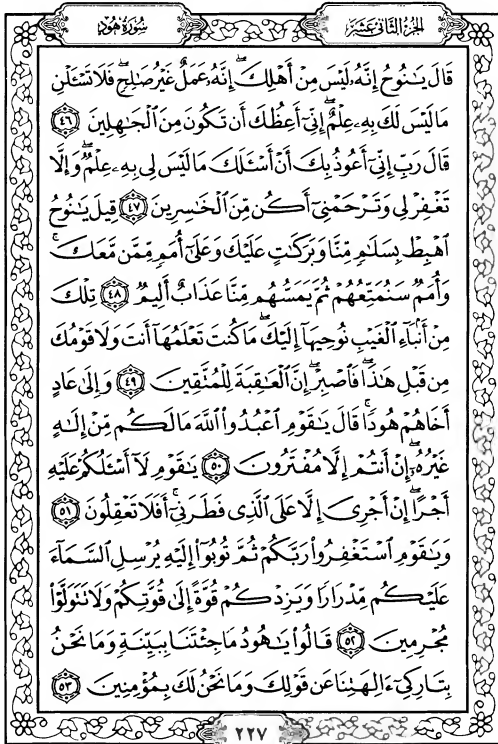 سورة هود
الجزء الثاني عشر
قَالَ يَـٰنُوحُ إِنَّهُۥ لَيْسَ مِنْ أَهْلِكَ ۖ إِنَّهُۥ عَمَلٌ غَيْرُ صَـٰلِحٍ ۖ فَلَا تَسْـَٔلْنِ
مَا لَيْسَ لَكَ بِهِۦ عِلْمٌ ۖ إِنِّىٓ أَعِظُكَ أَن تَكُونَ مِنَ ٱلْجَـٰهِلِينَ ٤٦
قَالَ رَبِّ إِنِّىٓ أَعُوذُ بِكَ أَنْ أَسْـَٔلَكَ مَا لَيْسَ لِى بِهِۦ عِلْمٌ ۖ وَإِلَّا
تَغْفِرْ لِى وَتَرْحَمْنِىٓ أَكُن مِّنَ ٱلْخَـٰسِرِينَ ٤٧ قِيلَ يَـٰنُوحُ
ٱهْبِطْ بِسَلَـٰمٍ مِّنَّا وَبَرَكَـٰتٍ عَلَيْكَ وَعَلَىٰٓ أُمَمٍ مِّمَّن مَّعَكَ ۚ
وَأُمَمٌ سَنُمَتِّعُهُمْ ثُمَّ يَمَسُّهُم مِّنَّا عَذَابٌ أَلِيمٌ ٤٨ تِلْكَ
مِنْ أَنۢبَآءِ ٱلْغَيْبِ نُوحِيهَآ إِلَيْكَ ۖ مَا كُنتَ تَعْلَمُهَآ أَنتَ وَلَا قَوْمُكَ
مِن قَبْلِ هَـٰذَا ۖ فَٱصْبِرْ ۖ إِنَّ ٱلْعَـٰقِبَةَ لِلْمُتَّقِينَ ٤٩ وَإِلَىٰ عَادٍ
أَخَاهُمْ هُودًا ۚ قَالَ يَـٰقَوْمِ ٱعْبُدُوا۟ ٱللَّهَ مَا لَكُم مِّنْ إِلَـٰهٍ
غَيْرُهُۥٓ ۖ إِنْ أَنتُمْ إِلَّا مُفْتَرُونَ ٥٠ يَـٰقَوْمِ لَآ أَسْـَٔلُكُمْ عَلَيْهِ
أَجْرًا ۖ إِنْ أَجْرِىَ إِلَّا عَلَى ٱلَّذِى فَطَرَنِىٓ ۚ أَفَلَا تَعْقِلُونَ ٥١
وَيَـٰقَوْمِ ٱسْتَغْفِرُوا۟ رَبَّكُمْ ثُمَّ تُوبُوٓا۟ إِلَيْهِ يُرْسِلِ ٱلسَّمَآءَ
عَلَيْكُم مِّدْرَارًا وَيَزِدْكُمْ قُوَّةً إِلَىٰ قُوَّتِكُمْ وَلَا تَتَوَلَّوْا۟
مُجْرِمِينَ ٥٢ قَالُوا۟ يَـٰهُودُ مَا جِئْتَنَا بِبَيِّنَةٍ وَمَا نَحْنُ
بِتَارِكِىٓ ءَالِهَتِنَا عَن قَوْلِكَ وَمَا نَحْنُ لَكَ بِمُؤْمِنِينَ ٥٣
٢٢٧